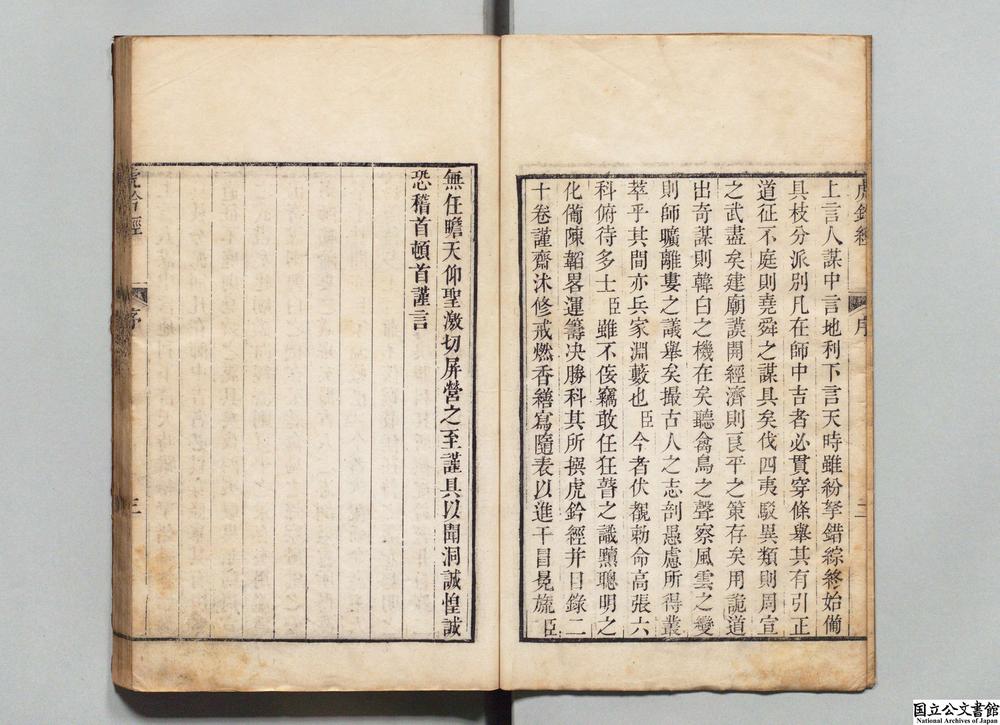 虎鈐經
序
二
上言人謀中言地利下言天時雖紛拏錯綜終始備
具枝分派別凡在師中吉者必貫穿條舉其有引正
道征不庭則堯舜之謀具矣伐四夷駁異類則周宣
之武盡矣建廟謨開經濟則良平之策存矣用詭道
出奇謀則韓白之機在矣聽禽鳥之聲察風雲之變
則師曠離婁之議舉矣撮古人之志剖愚慮所得叢
萃乎其間亦兵家淵藪也臣今者伏覩勅命高張六
科俯待多士臣雖不佞竊敢任狂瞽之識黷聰明之
化備陳韜畧運籌决勝科其所撰虎鈐經并目錄二
十卷謹齋沐修戒燃香繕寫隨表以進干冒晃旒臣
無任瞻天仰聖激切屏營之至謹具以聞洞誠惶誠
恐稽首頓首謹言
虎鈐經
序
三
国立公文書館
National Archives of Japan